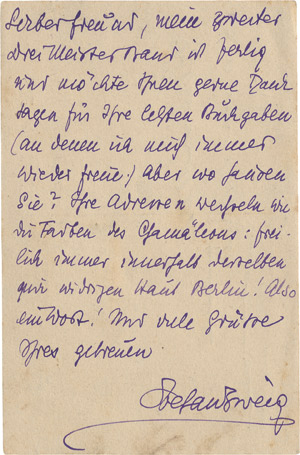 Lieber Freund, mein zweiter
Drei Meister Band ist fertig
und möchte Ihnen gerne Dank
sagen für Ihre letzten Buchgaben
(an denen ich mich immer
wieder freue!) Aber wo hausen
Sie? Ihre Adressen wechseln wie
die Farben des Chamäleons: frei-
lich immer innerhalb derselben
mir widrigen Haut Berlin! Also
ein Wort! Und viele Grüsse
Ihres getreuen
Stefan Zweig